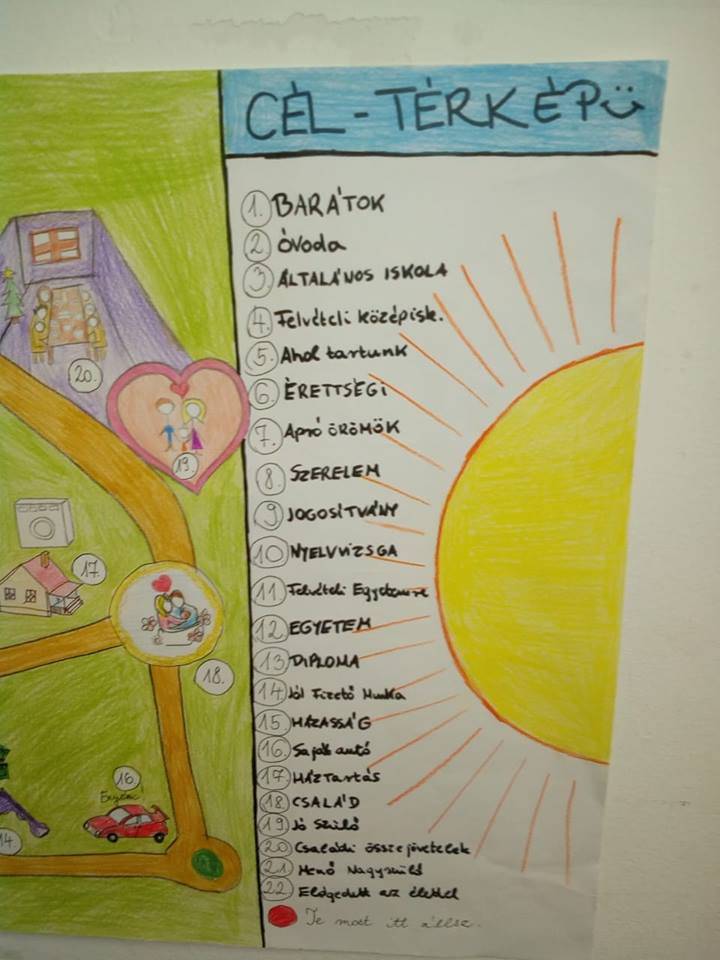 CÉL-TÉRKÉP
1. BARÁTOK
2. ÓVoda
3. ÁLTALÁNOS ISKOLA
4. Felvételi középisk.
5. Ahol tartunk
6. ÉRETTSÉGI
7. APRÓ ÖRÖMÖK
8. SZERELEM
9. JOGOSÍTVÁNY
10. NYELVVIZSGA
11. Felvételi Egyetemre
12. EGYETEM
13. DIPLOMA
14. Jól Fizető Munka
15. HÁZASSÁG
16. Saját autó
17. HÁZTARTÁS
18. CSALÁD
19. Jó Szülő
20. Családi összejövetelek
21. Menő Nagyszülő
22. Elégedett az élettel
Te most itt állsz.
20.
19.
17.
18.
16.
14.